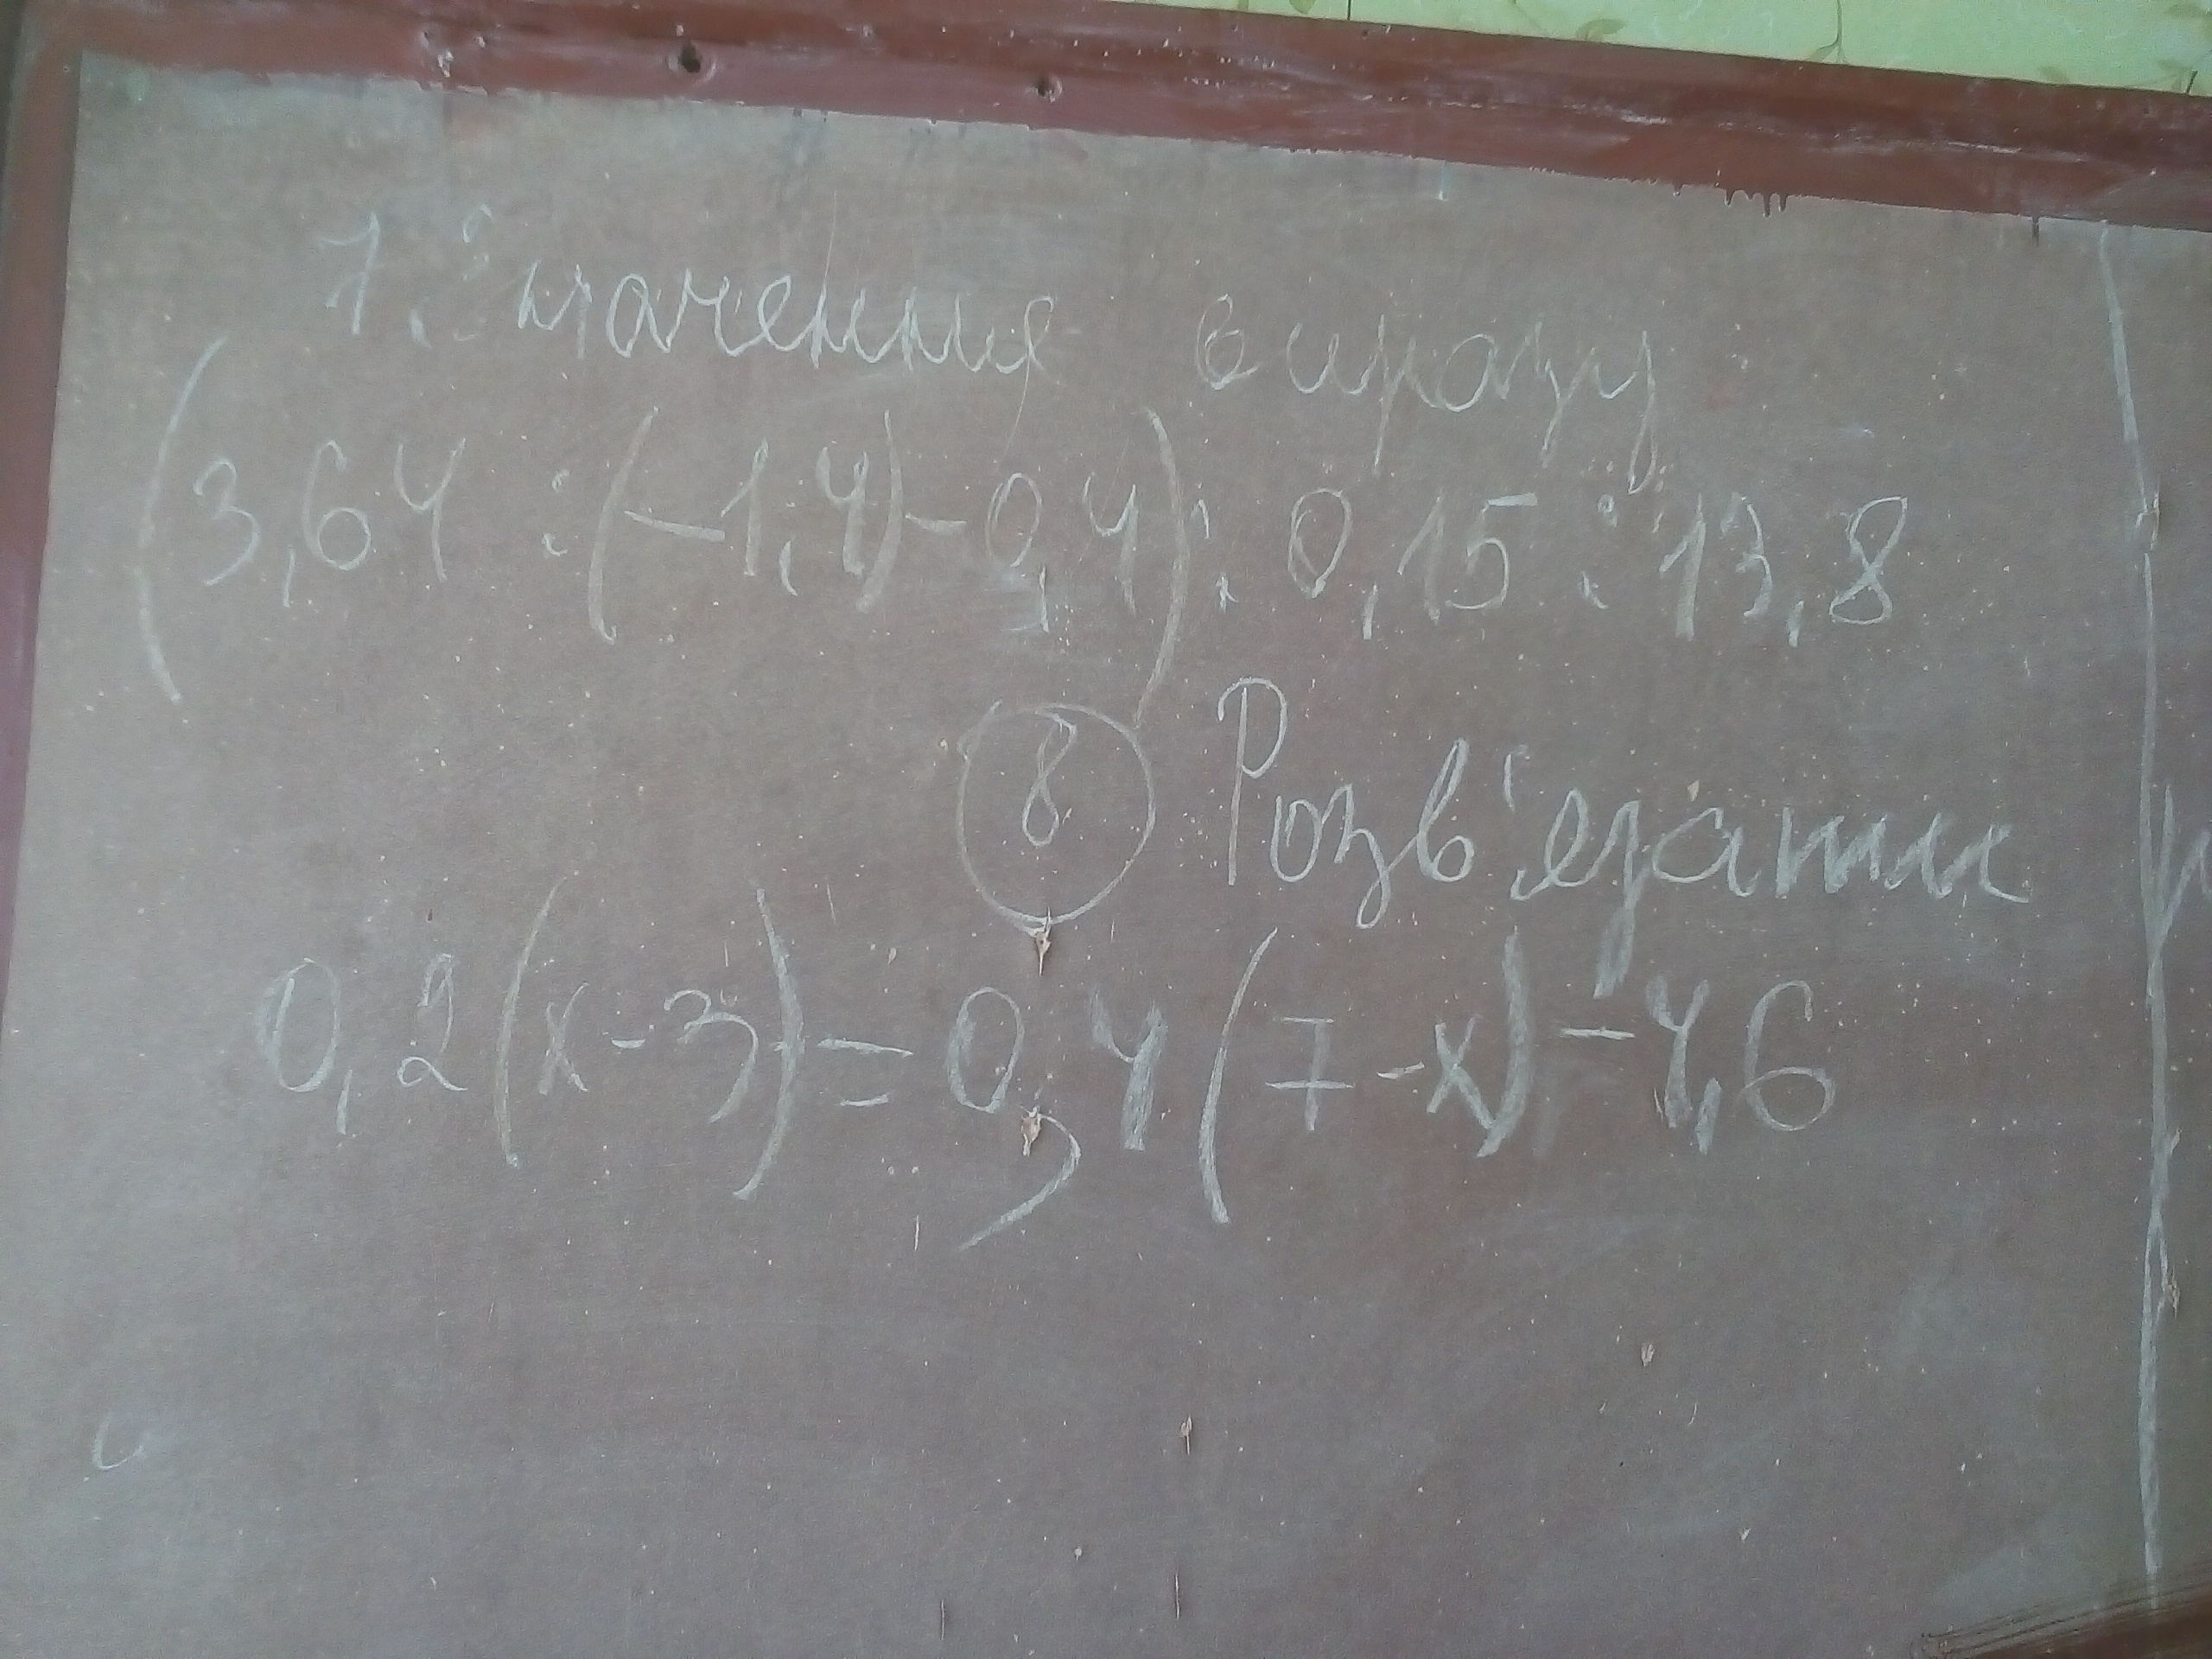 7. Значення виразу
(3,64 : (-1,4) - 0,4) : 0,15 : 13,8
8. Розв'язати
0,2(x-3) = 0,4(7-x) - 4,6